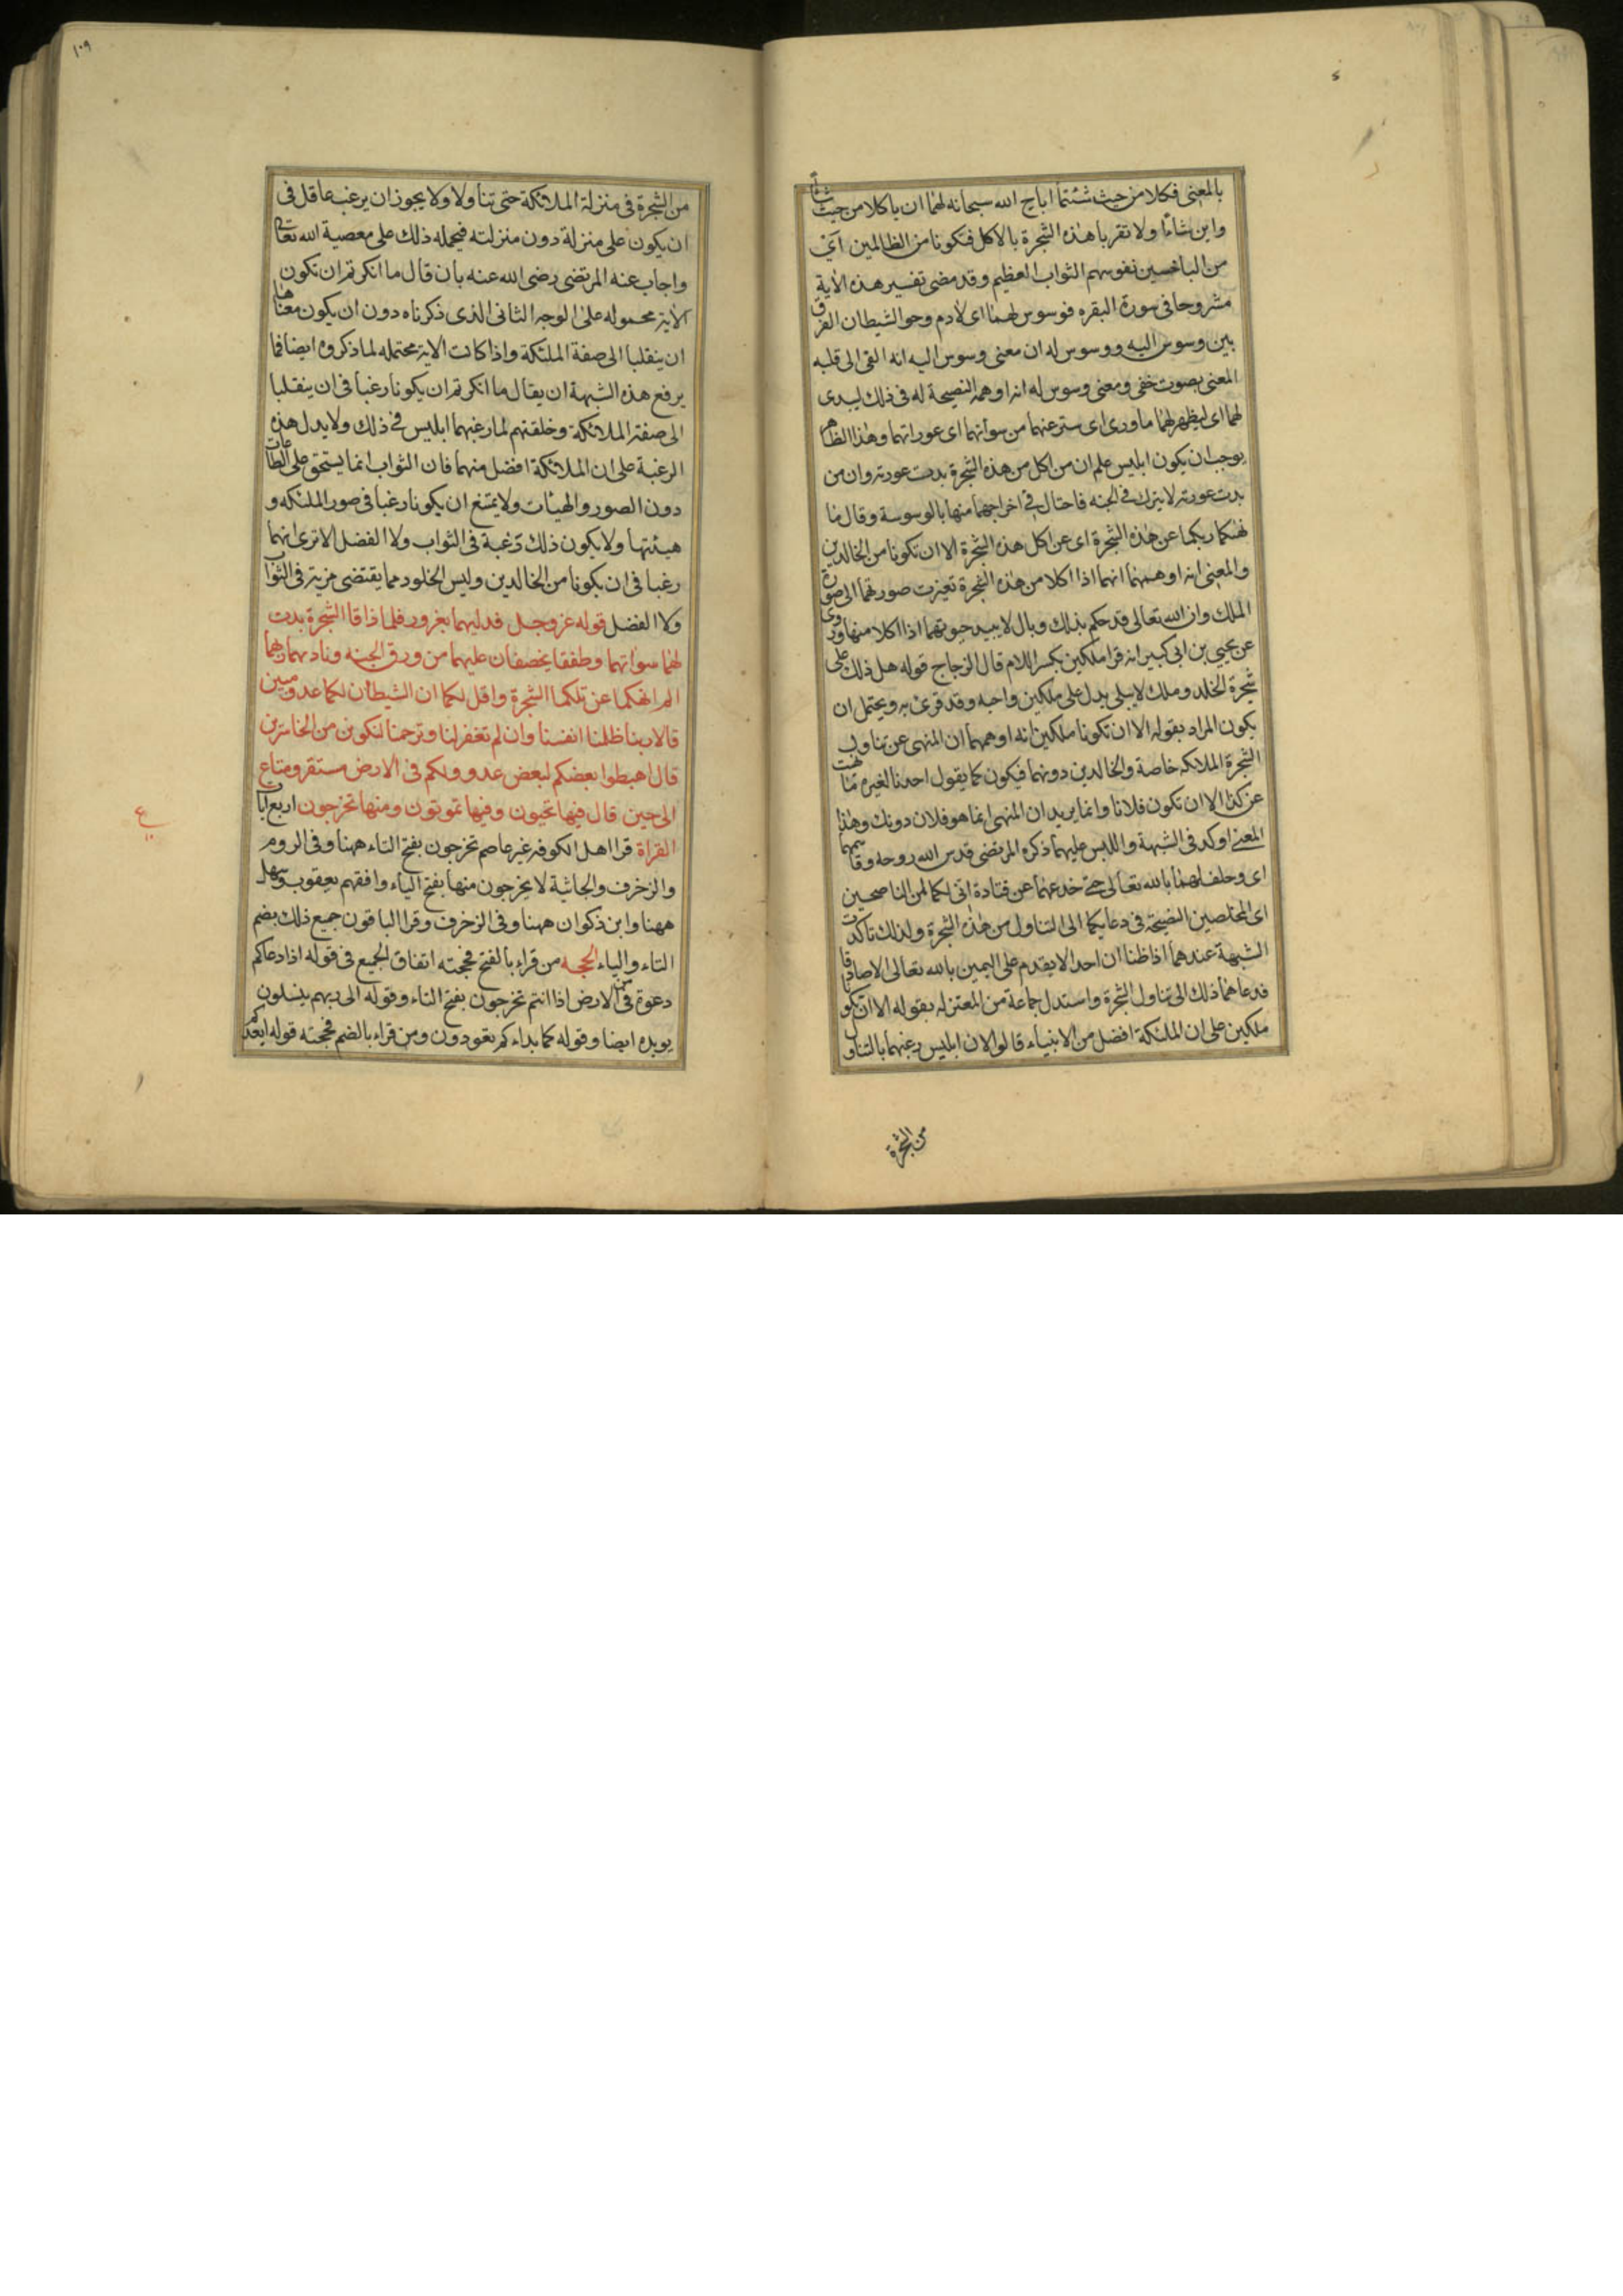 بالمعنى فكلا من حيث شئتما اباح الله سبحانه لهما ان ياكلا من حيث شاءا
واين شاءا ولا تقربا هذه الشجرة بالاكل فتكونا من الظالمين اى
من الباخسين نفوسهم الثواب العظيم وقد مضى تفسير هذه الاية
مشروحا فى سورة البقره فوسوس لهما اى لادم وحوا الشيطان الفرق
بين وسوس اليه ووسوس له ان معنى وسوس اليه انه القى الى قلبه
المعنى بصوت خفى ومعنى وسوس له انه اوهمه النصيحة له فى ذلك ليبدى
لهما اى ليظهر لهما ما ورى اى ستر عنهما من سوأتهما اى عوراتهما وهذا الظاهر
يوجب ان يكون ابليس علم ان من اكل من هذه الشجرة بدت عورته وان من
بدت عورته لا يترك فى الجنه فاحتال فى اخراجهما منها بالوسوسة وقال ما
نهىكما ربكما عن هذه الشجرة اى عن اكل هذه الشجرة الا ان تكونا من الخالدين
والمعنى انه اوهمهما انهما اذا اكلا من هذه الشجرة تغيرت صورتهما الى صورة
الملك وان الله تعالى قد حكم بذلك وبال لا يبيد حيوتهما اذا اكلا منها وروى
عن يحيى بن ابى كبير انه قرا ملكين بكسر اللام قال الزجاج قوله هل ذلك على
شجرة الخلد وملك لا يبلى يدل على ملكين واحبه وقد قرئ به ويحتمل ان
يكون المراد بقوله الا ان تكونا ملكين انه اوهمهما ان المنهى عن تناول
الشجرة الملائكه خاصة والخالدين دونهما فيكون كما يقول احدنا لغيره ما نهيت
عن كذا الا ان تكون فلانا وانما يريد ان المنهى انما هو فلان دونك وهذا
المعنى اوكد فى الشبهة واللبس عليهما ذكره المرتضى قدس الله روحه وقاسمهما
اى وحلف لهما بالله تعالى حتى خدعهما عن قتادة انى لكما لمن الناصحين
اى المخلصين النصيحة فى دعايكما الى التناول من هذه الشجرة ولذلك تاكدت
الشبهة عندهما اذا ظنا ان احدا لا يقدم على اليمين بالله تعالى الا صادقا
فدعاهما ذلك الى تناول الشجرة واستدل جماعة من المعتزله بقوله الا ان تكونا
ملكين على ان الملئكة افضل من الانبياء قالوا لان ابليس رغبهما بالتناول
من الشجرة
١٠٩
من الشجرة فى منزلة الملائكة حتى تناولا ولا يجوز ان يرغب عاقل فى
ان يكون على منزلة دون منزلته فيحمله ذلك على معصية الله تعالى
واجاب عنه المرتضى رضى الله عنه بان قال ما انكرتم ان تكون
الاية محموله على الوجه الثانى الذى ذكرناه دون ان يكون معناها
ان ينقلبا الى صفة الملئكة واذا كانت الاية محتمله لما ذكروه ايضا فما
يرفع هذه الشبهة ان يقال ما انكرتم ان يكونا رغبا فى ان ينقلبا
الى صفة الملائكة وخلقتهم لما رغبهما ابليس فى ذلك ولا يدل هذه
الرغبة على ان الملائكة افضل منهما فان الثواب انما يستحق على الطاعات
دون الصور والهيئات ولا يمتنع ان يكونا رغبا فى صور الملئكه و
هيئتها ولا يكون ذلك رغبة فى الثواب ولا الفضل الا ترى انهما
رغبا فى ان يكونا من الخالدين وليس الخلود مما يقتضى مزية فى الثواب
ولا الفضل قوله عز وجل فدليهما بغرور فلما ذاقا الشجرة بدت
لهما سواتهما وطفقا يخصفان عليهما من ورق الجنه وناديهما ربهما
الم انهكما عن تلكما الشجرة واقل لكما ان الشيطان لكما عدو مبين
قالا ربنا ظلمنا انفسنا وان لم تغفر لنا وترحمنا لنكونن من الخاسرين
قال اهبطوا بعضكم لبعض عدو ولكم فى الارض مستقر ومتاع
الى حين قال فيها تحيون وفيها تموتون ومنها تخرجون اربع آيات
القراة قرا اهل الكوفه غير عاصم تخرجون بفتح التاء ههنا وفى الروم
والزخرف والجاثية لا يخرجون منها بفتح الياء وافقهم يعقوب وسهل
ههنا وابن ذكوان ههنا وفى الزخرف وقرا الباقون جميع ذلك بضم
التاء والياء الحجه من قراء بالفتح فحجته اتفاق الجميع فى قوله اذا دعاكم
دعوة من الارض اذا انتم تخرجون بفتح التاء وقوله الى ربهم ينسلون
يويده ايضا وقوله كما بداءكم تعودون ومن قراء بالضم فحجته قوله ايعدكم